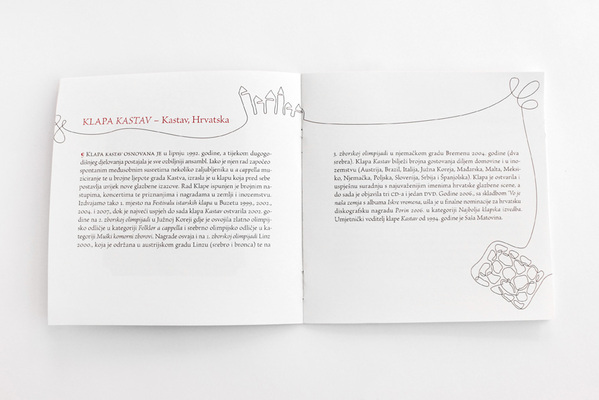 KLAPA KASTAV – Kastav, Hrvatska
KLAPA KASTAV OSNOVANA JE u lipnju 1992. godine, a tijekom dugogo-
dišnjeg djelovanja postajala je sve ozbiljniji ansambl. Iako je njen rad započeo
spontanim međusobnim susretima nekoliko zaljubljenika u a cappella mu-
ziciranje te u brojne ljepote grada Kastva, izrasla je u klapu koja pred sebe
postavlja uvijek nove glazbene izazove. Rad Klape ispunjen je brojnim na-
stupima, koncertima te priznanjima i nagradama u zemlji i inozemstvu.
Izdvajamo tako 1. mjesto na Festivalu istarskih klapa u Buzetu 1999., 2002.,
2004. i 2007., dok je najveći uspjeh do sada klapa Kastav ostvarila 2002. go-
dine na 2. zborskoj olimpijadi u Južnoj Koreji gdje je osvojila zlatno olimpij-
sko odličje u kategoriji Folklor a cappella i srebrno olimpijsko odličje u ka-
tegoriji Muški komorni zborovi. Nagrade osvaja i na 1. zborskoj olimpijadi Linz
2000., koja je održana u austrijskom gradu Linzu (srebro i bronca) te na
3. zborskoj olimpijadi u njemačkom gradu Bremenu 2004. godine (dva
srebra). Klapa Kastav bilježi brojna gostovanja diljem domovine i u ino-
zemstvu (Austrija, Brazil, Italija, Južna Koreja, Mađarska, Malta, Meksi-
ko, Njemačka, Poljska, Slovenija, Srbija i Španjolska). Klapa je ostvarila i
uspješnu suradnju s najuvaženijim imenima hrvatske glazbene scene, a
do sada je objavila tri CD-a i jedan DVD. Godine 2006., sa skladbom Vo je
naša zemja s albuma Iskre vremena, ušla je u finalne nominacije za hrvatsku
diskografsku nagradu Porin 2006. u kategoriji Najbolja klapska izvedba.
Umjetnički voditelj klape Kastav od 1994. godine je Saša Matovina.